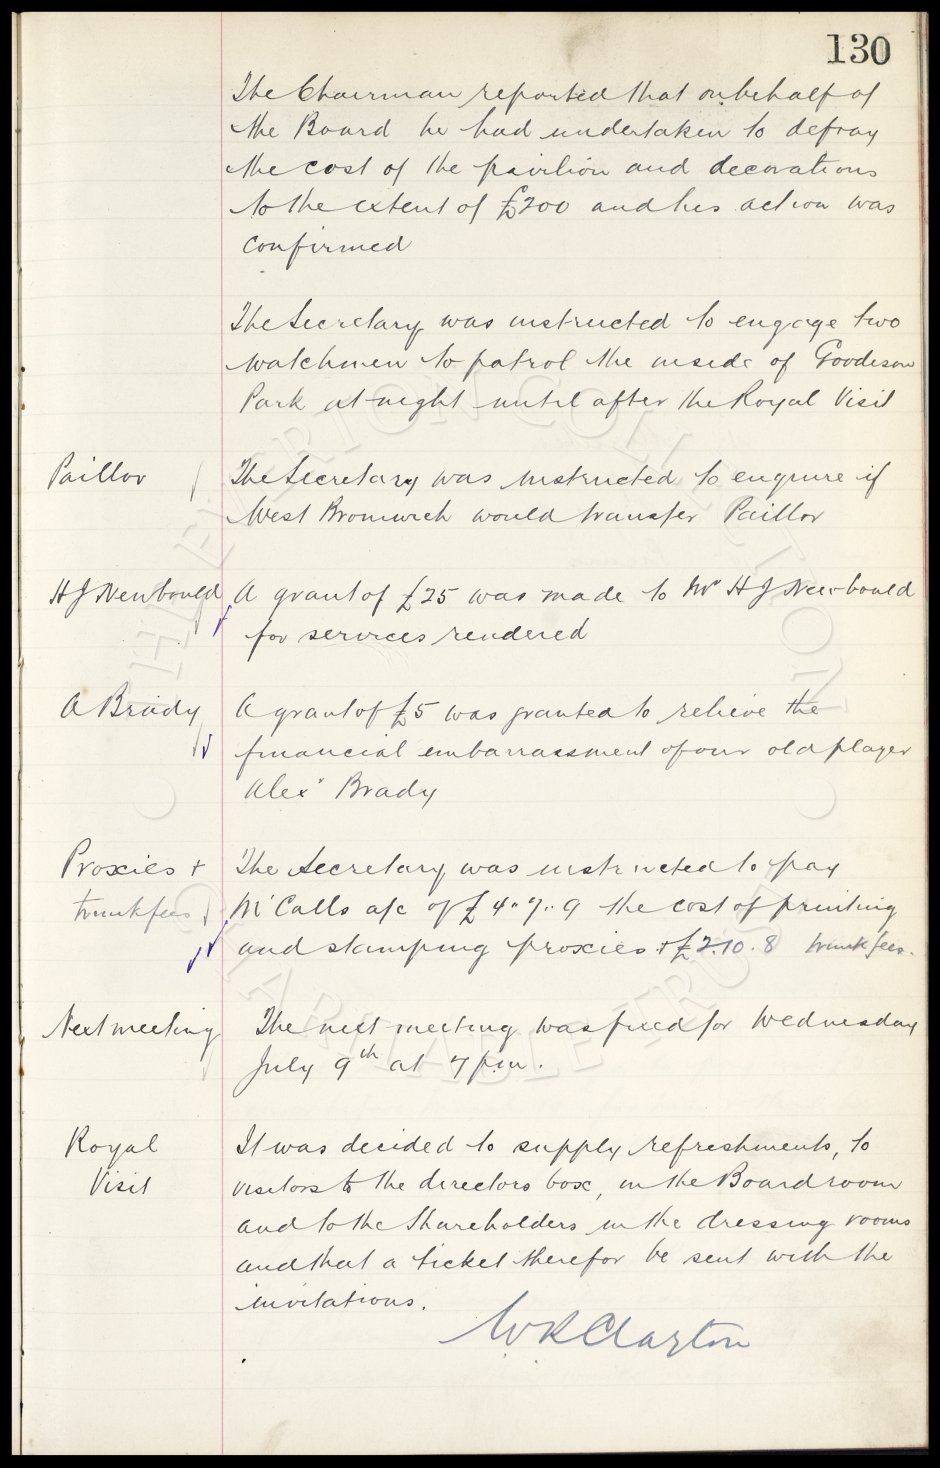 130
The Chairman reported that on behalf of
the Board he had undertaken to defray
the cost of the pavilion and decorations
to the extent of £200 and his action was
confirmed
The Secretary was instructed to engage two
watchmen to patrol the inside of Goodison
Park at night until after the Royal Visit
Paillor The Secretary was instructed to enquire if
West Bromwich would transfer Paillor
H J Newbould A grant of £25 was made to Mr H J Newbould
for services rendered
A Brady A grant of £5 was granted to relieve the
financial embarrassment of our old player
Alexr Brady
Proxies + The Secretary was instructed to pay
trunk fees McCalls a/c of £4"7"9 the cost of printing
and stamping proxies + £2.10.8 trunk fees.
Next meeting The next meeting was fixed for Wednesday
July 9th at 7 pm.
Royal It was decided to supply refreshments, to
Visit visitors to the directors box, in the Board room
and to the Shareholders in the dressing rooms
and that a ticket therefor be sent with the
invitations.
W R Clayton
THE EVERTON COLLECTION
CHARITABLE TRUST